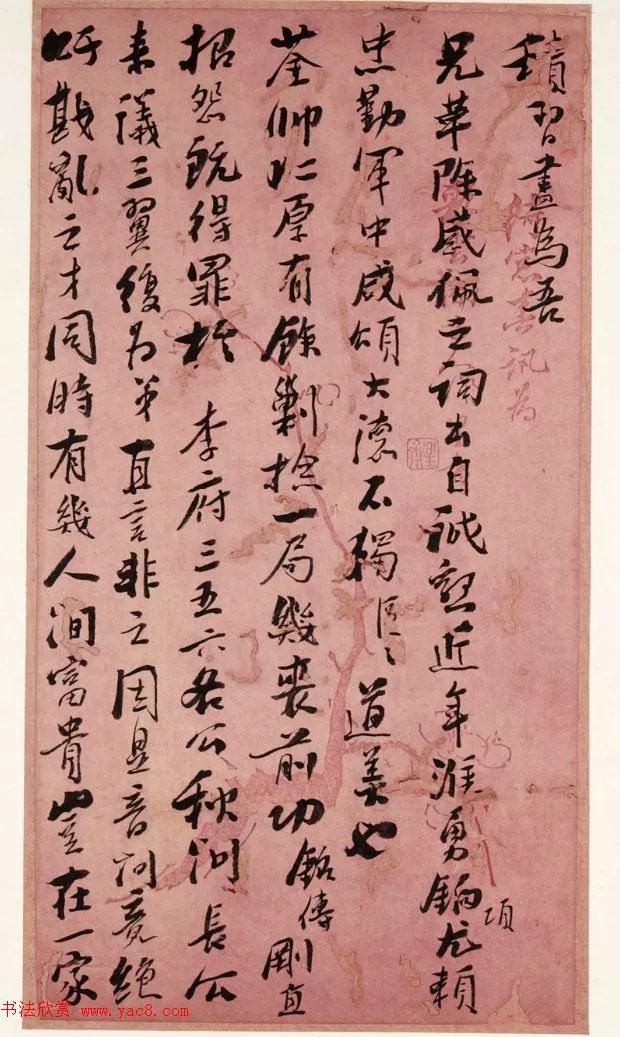 積習盡為吾
兄革除感佩之詞出自誠懇近年淮勇餉項尤賴
忠勤軍中咸頌大德不獨 道美也
荃帥仁厚有餘剿捻一局幾喪前功銘傳剛直
招怨既得罪於 李府三五六各公秋間長公
來議三翼復為弟直言非之因是音問竟絕
好戡亂之才同時有幾人間富貴豈在一家
书法欣赏 www.yac8.com